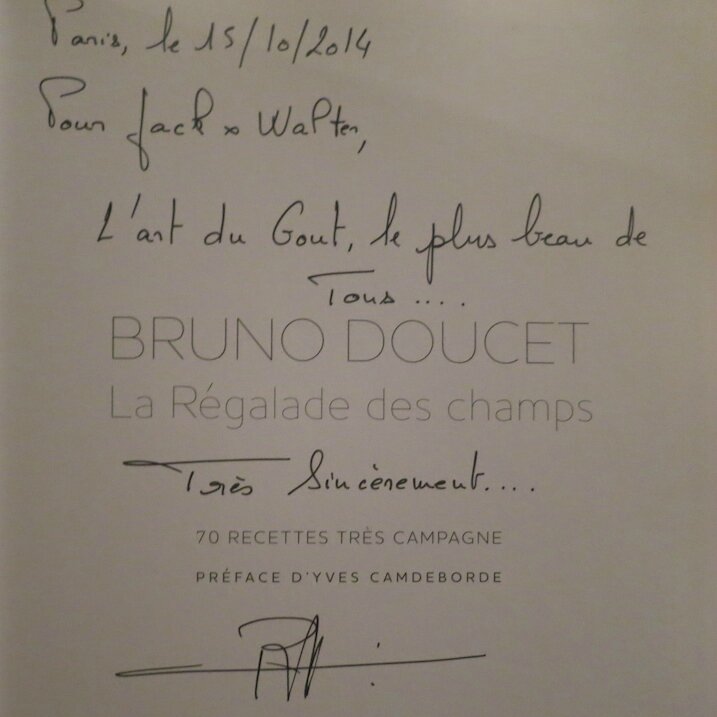 Paris, le 15/10/2014
Pour Jack & Walter,
L'art du Gout, le plus beau de
Tous ....
BRUNO DOUCET
La Régalade des champs
Très Sincèrement....
70 RECETTES TRÈS CAMPAGNE
PRÉFACE D'YVES CAMDEBORDE